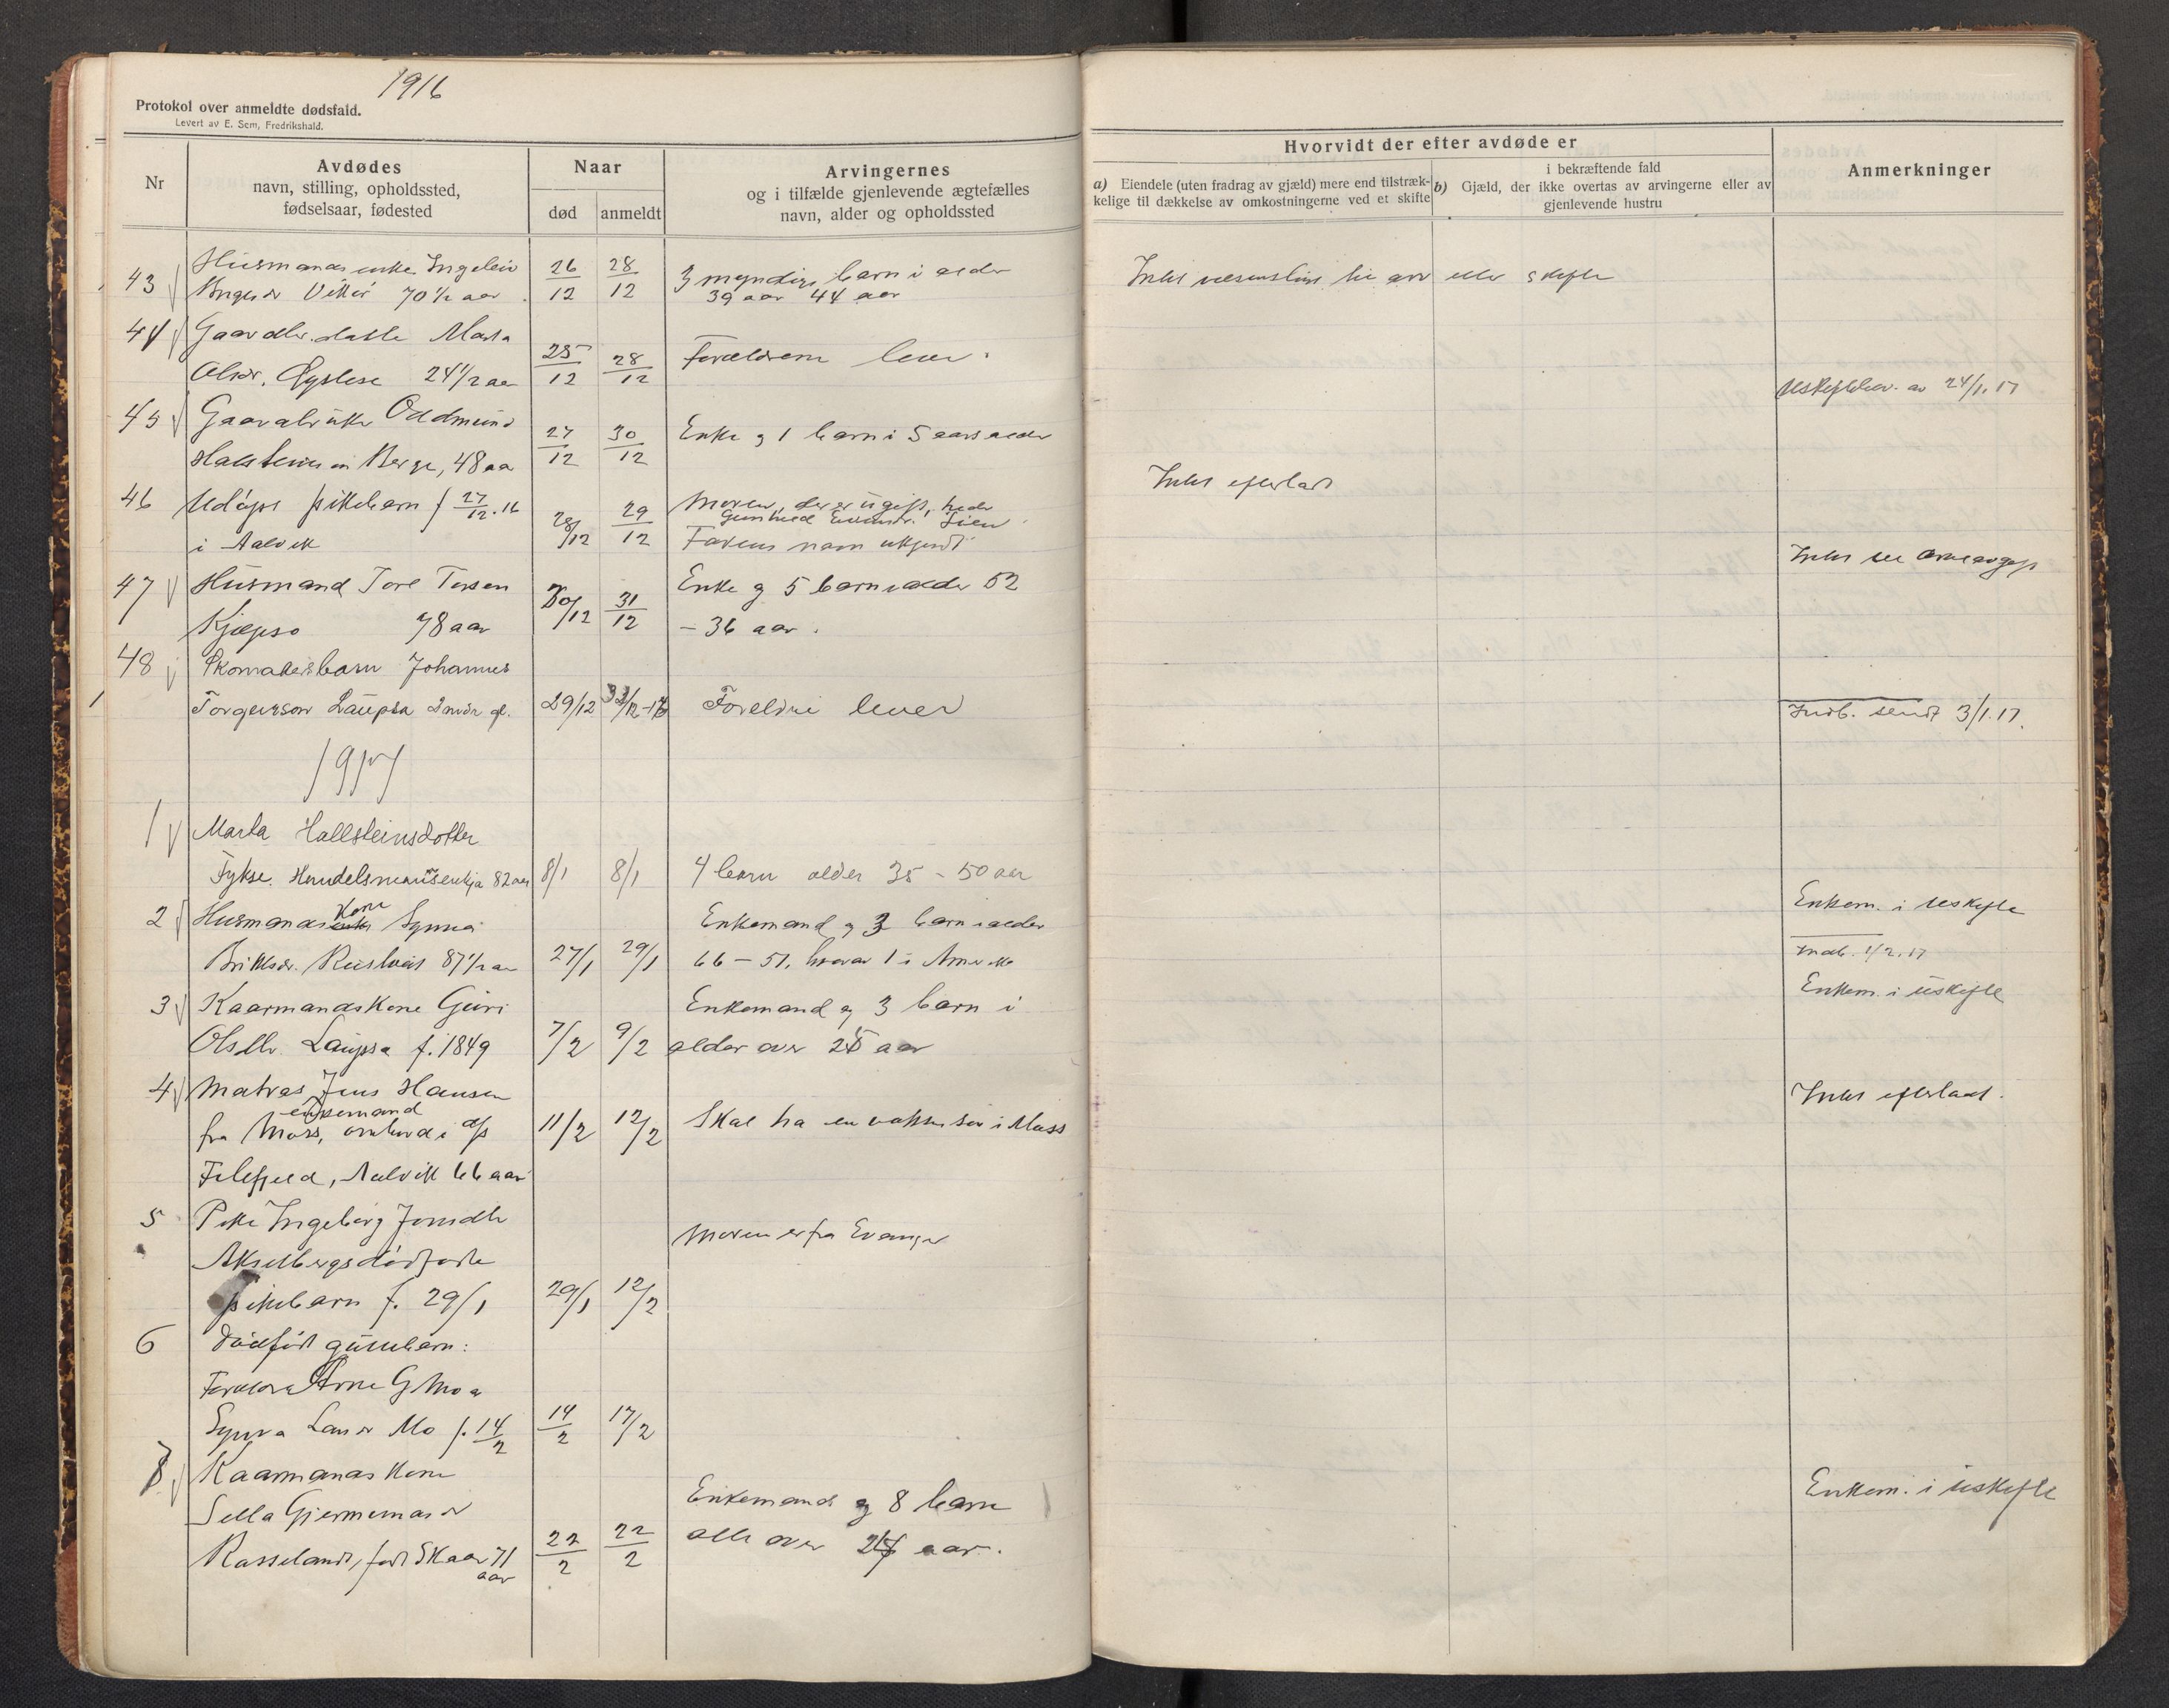 1916
Protokol over anmeldte dødsfald.
Levert av E. Sem, Fredrikshald.
Nr
Avdødes
navn, stilling, opholdssted,
fødselsaar, fødested
Naar
død
anmeldt
Arvingernes
og i tilfælde gjenlevende ægtefælles
navn, alder og opholdssted
Hvorvidt der efter avdøde er
a) Eiendele (uten fradrag av gjæld) mere end tilstræk-
kelige til dækkelse av omkostningerne ved et skifte
i bekræftende fald
b) Gjæld, der ikke overtas av arvingerne eller av
gjenlevende hustru
Anmerkninger
43 Husmandsenke Ingeleiv 26/12 28/12 3 myndige barn i alder
70 1/2 aar 39 aar 44 aar
Intet væsentligt til arv eller skifte
44 Gaardbr. datter Marta
Olsdr. 24 1/2 aar 25/12 28/12 Forældrene lever.
Uskiftebev. av 24/1.17
45 Gaardbruker Oddmund
Halsteinsen Berge, 48 aar 27/12 30/12 Enke og 1 barn i 5 aars alder
Intet efterladt
46 Udøpt pikebarn f 27/12.16
i Aalvik 28/12 29/12 Moren, der er ugift, heder
Gunhild Lien
Farens navn ukjendt
47 Husmand Tore Torsen
Kjepso 78 aar 30/12 31/12 Enke og 5 barn i alder 52
- 36 aar.
Intet til arveavgift
48 Skomakerbarn Johannes
Torgeirson Laupsa gl. 29/12 Foreldre lever
Indb. sendt 3/1.17.
1917
1 Marta Hallsteinsdotter
Fykse. Handelsmannsenkja 82 aar 8/1 8/1 4 born alder 35 - 50 aar
2 Husmandskone Synnva
87 1/2 aar 27/1 29/1 Enkemand og 3 barn i alder
66 - 51, hvorav 1 i Amerika
Enkem. i uskifte
Indb. 1/2.17
3 Kaarmandskone Guri
Olsdtr. Laupsa f. 1849 7/2 9/2 Enkemand og 3 barn i
alder over 25 aar
Enkem. i uskifte
4 Matros Jens Hansen
enkemand
fra Moss, ombord i d/s
Filefjeld, Aalvik 66 aar 11/2 12/2 Skal ha en voksen søn i Moss
Intet efterladt.
5 Pike Ingeborg Jonsdtr
Akselbergs dødfødte
pikebarn f. 29/1 29/1 12/2 Moren er fra Evanger
6 Dødfødt guttebarn:
Forældre Arne G Mo og
Synva Larsdr Mo f. 14/2 14/2 17/2
7 Kaarmandskone
Sella
Rosseland, født Skaar 71
aar 22/2 22/2 Enkemand og 8 barn
alle over 24 aar.
Enkem. i uskifte